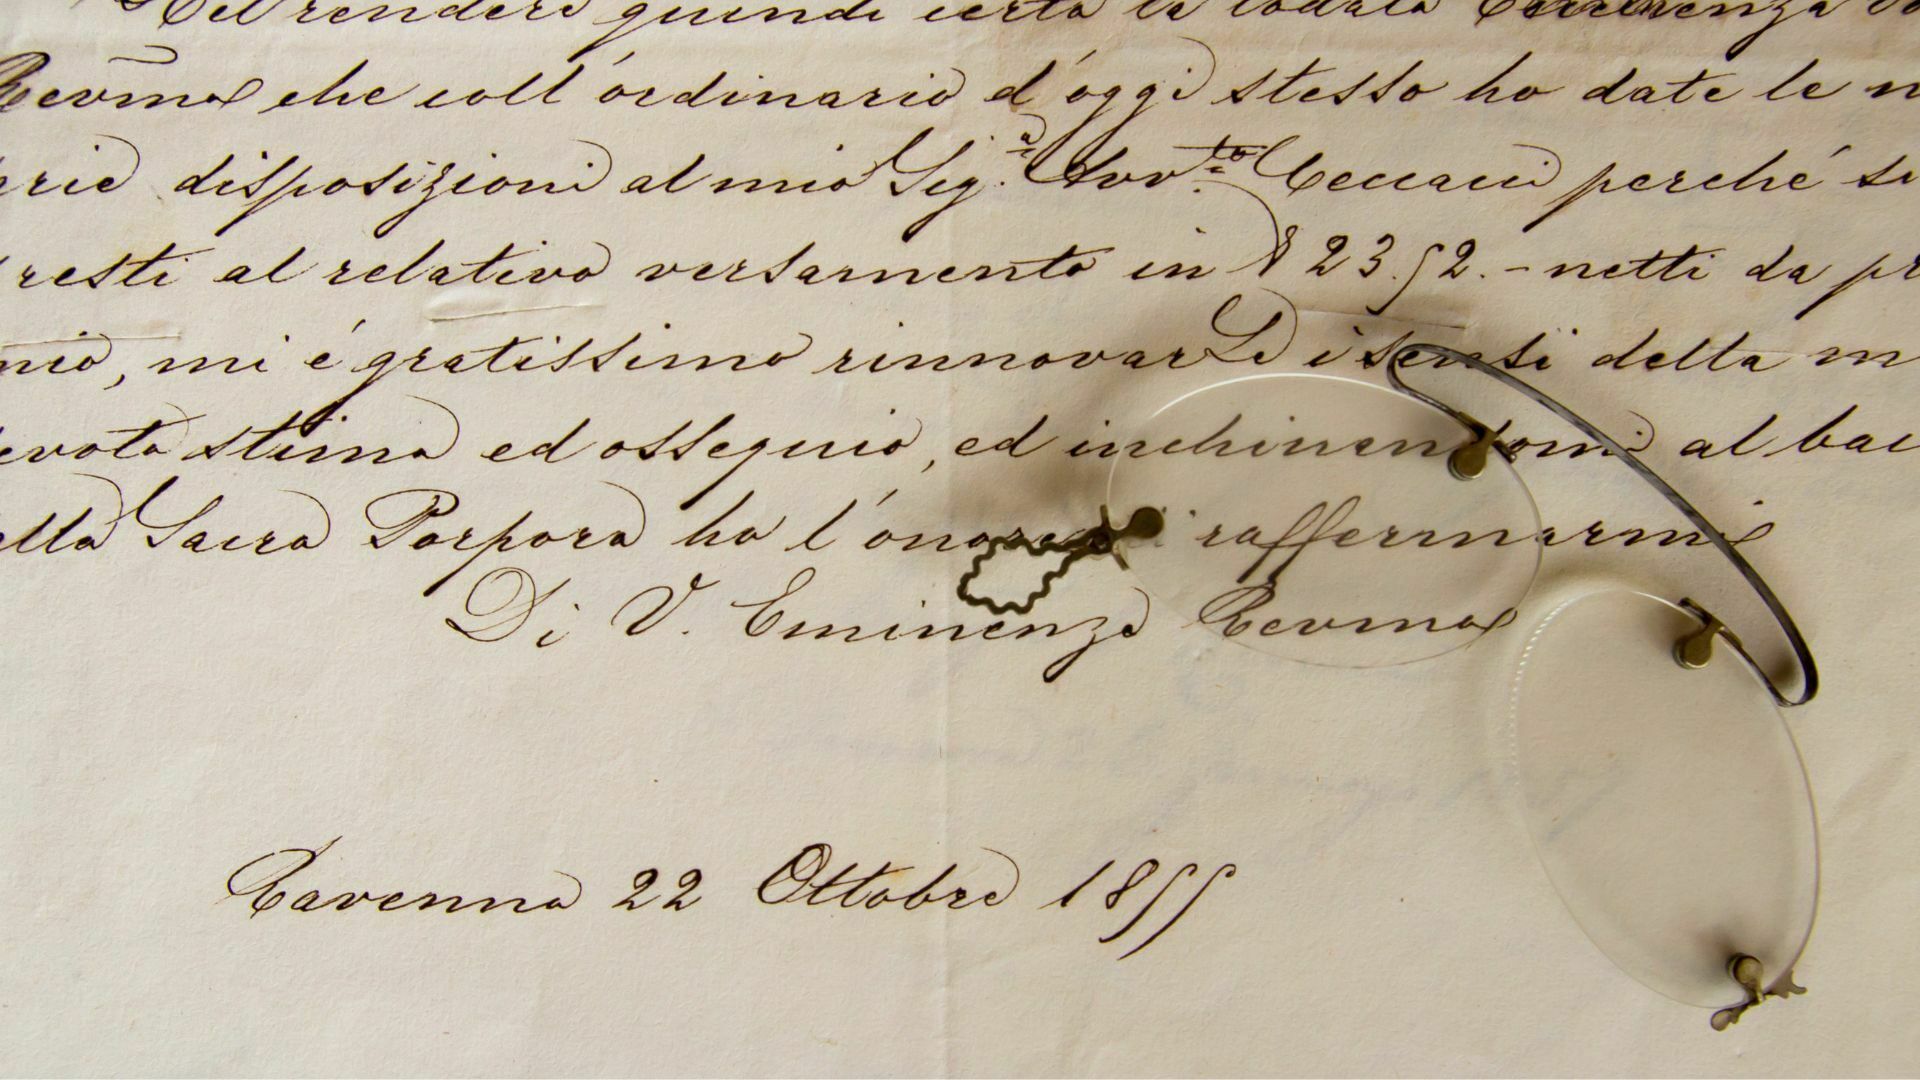 Nel rendere quindi certa la lodata Eminenza
Revma che coll'ordinario d'oggi stesso ho date le n
arie disposizioni al mio Sig.r Avv.to Ceccacci perché si
resti al relativo versamento in 23.52.- netti da pr
nio, mi é gratissimo rinnovarLe i sensi della m
evota stima ed ossequio, ed inchinandomi al bac
ella Sacra Porpora ho l'onore di raffermarmi
Di V. Eminenza Revma
Ravenna 22 Ottobre 1855